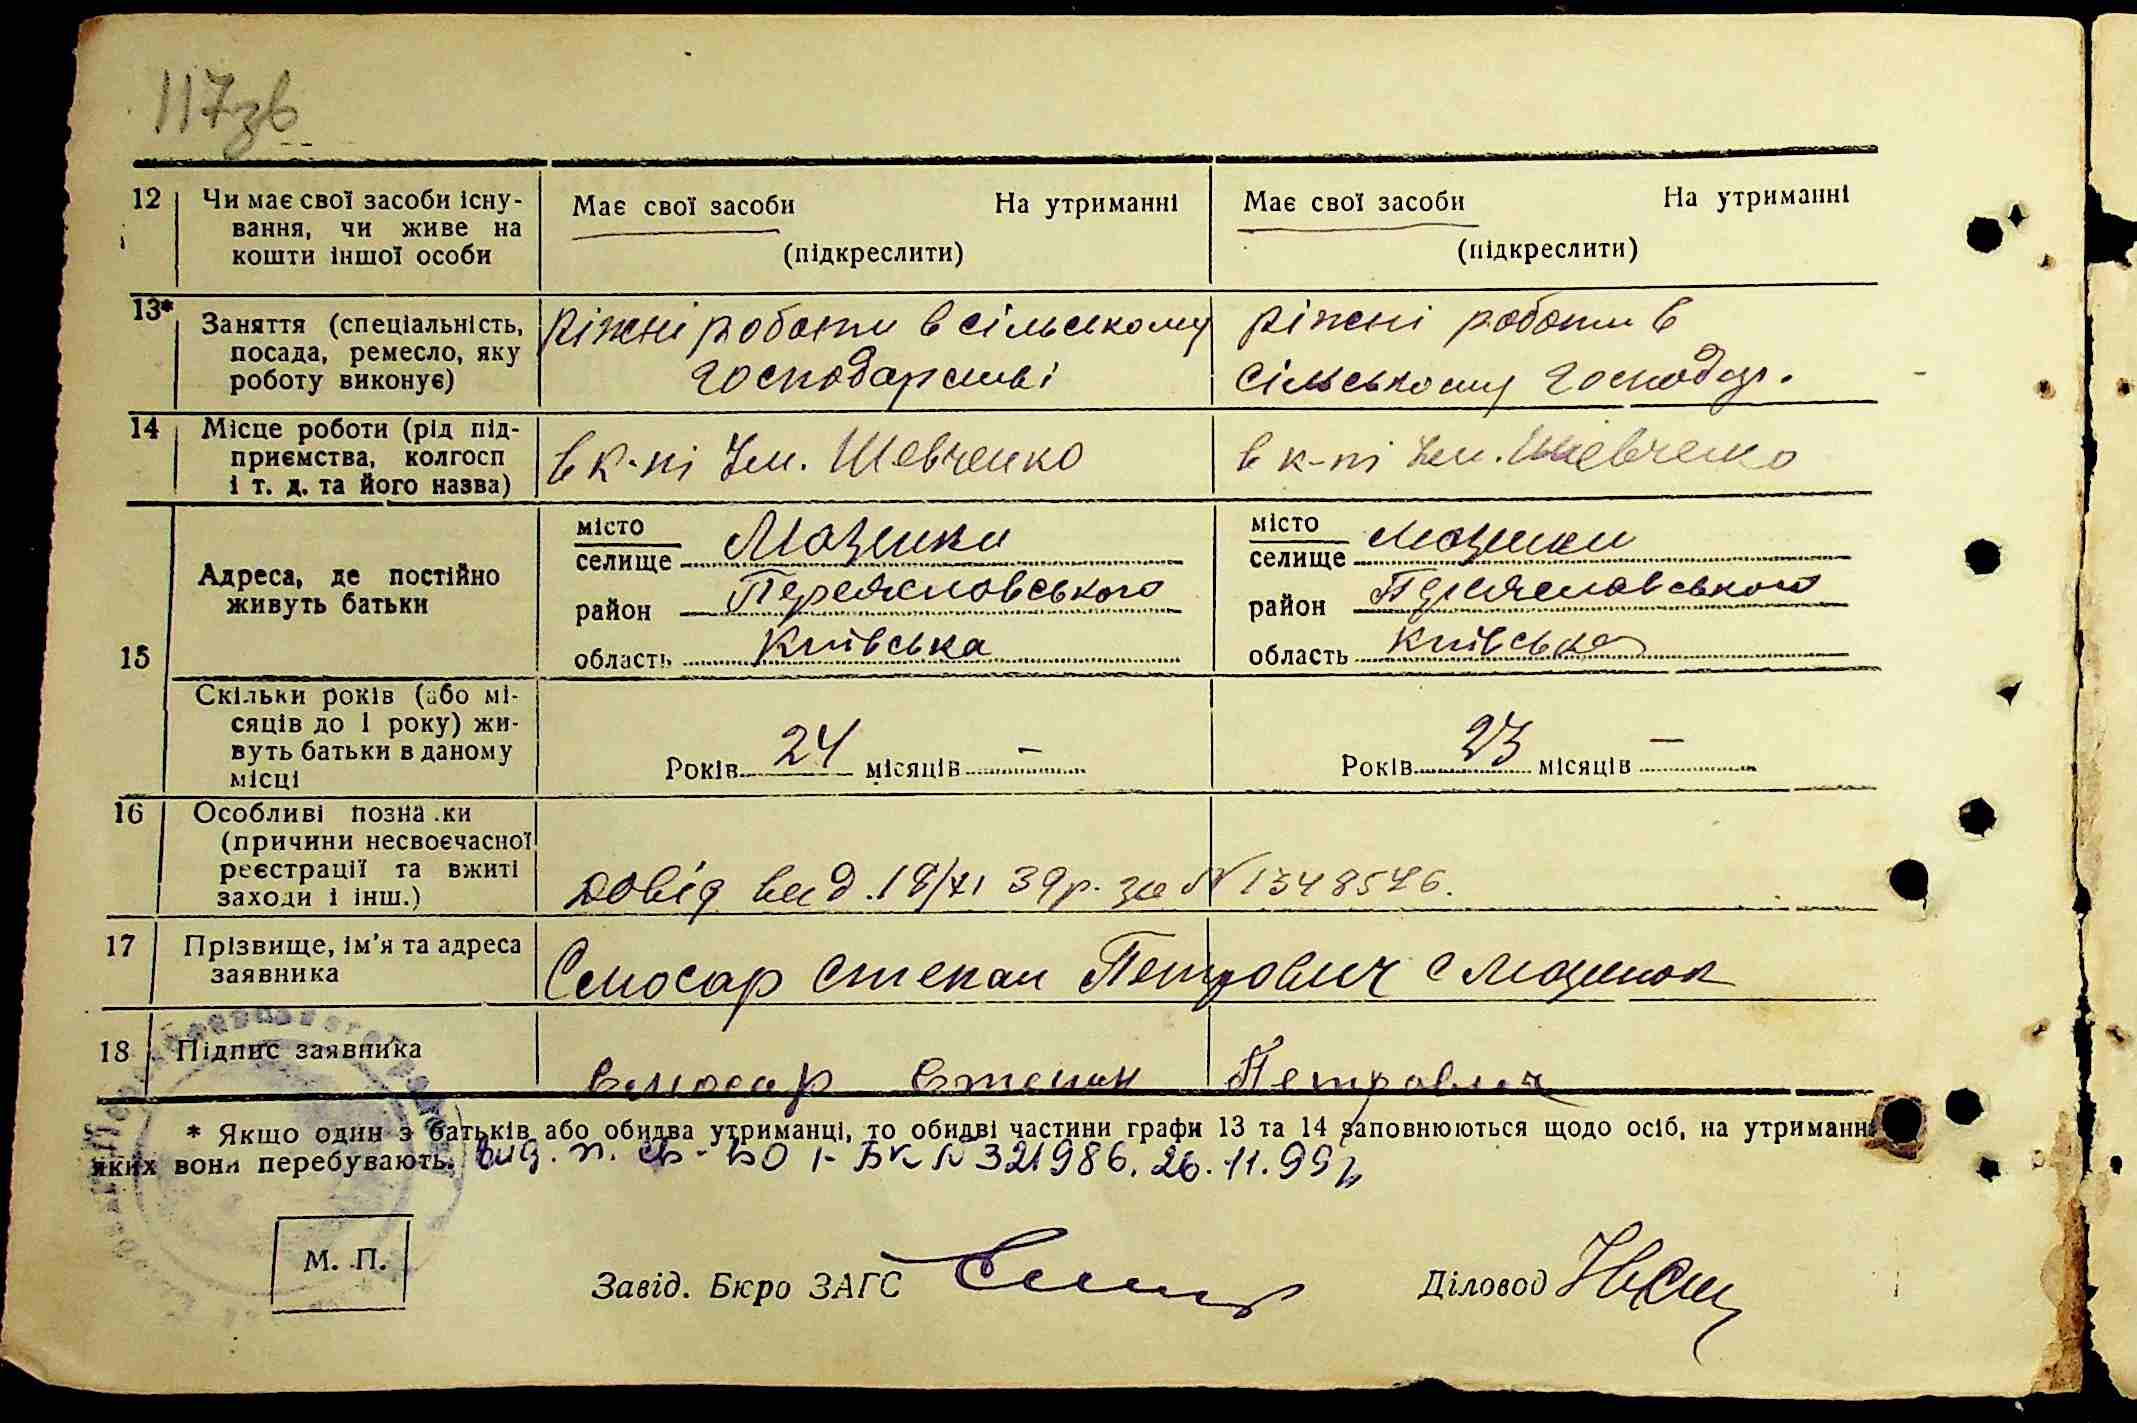 117зв
12 Чи має свої засоби існу- Має свої засоби На утриманні Має свої засоби На утриманні
вання, чи живе на
кошти іншої особи (підкреслити) (підкреслити)
13* Заняття (спеціальність, Ріжні роботи в сільському ріжні роботи в
посада, ремесло, яку
роботу виконує) господарстві сільському господар.
14 Місце роботи (рід під-
приємства, колгосп в к-пі Ім. Шевченко в к-пі Ім. Шевченко
і т. д. та його назва)
15 Адреса, де постійно
живуть батьки
місто
селище Мазинки
район Переяславського
область Київська
місто
селище Мазинки
район Переяславського
область Київська
Скільки років (або мі-
сяців до 1 року) жи-
вуть батьки в даному
місці
Років 24 місяців — Років 23 місяців —
16 Особливі позна.ки
(причини несвоєчасної
реєстрації та вжиті
заходи і інш.)
Довід вид. 18/XI 39р. за N 1348546.
17 Прізвище, ім'я та адреса
заявника
Слюсар Степан Петрович с Мазинок
18 Підпис заявника Слюсар Степан Петрович
* Якщо один з батьків або обидва утриманці, то обидві частини графи 13 та 14 заповнюються щодо осіб, на утриманні
яких вони перебувають. вид. п. св-во І-БК N 321986. 26.11.99р
М. П.
Завід. Бюро ЗАГС
Діловод